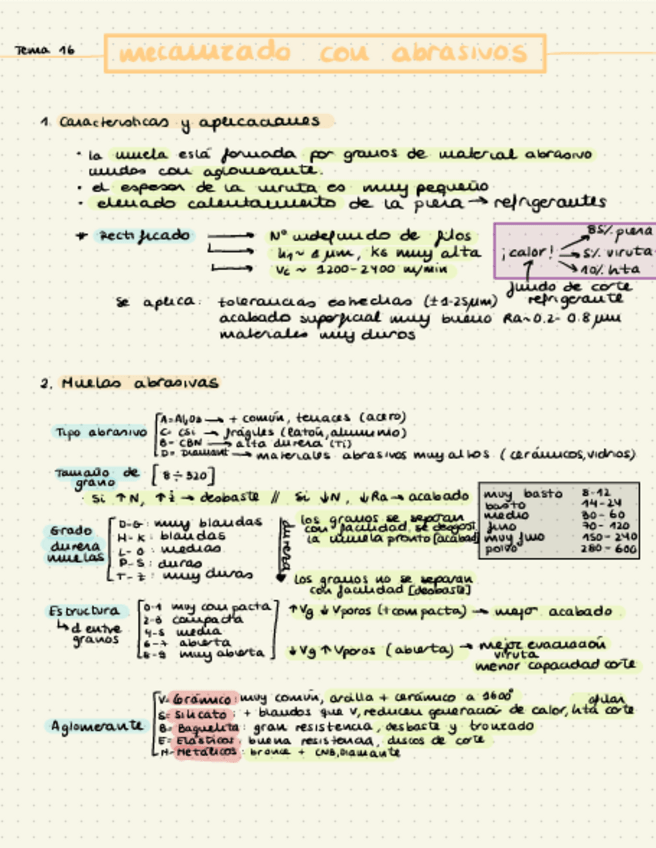 Tema 16
mecanizado con abrasivos
1. Características y aplicaciones
· la muela está formada por granos de material abrasivo
unidos con aglomerante.
· el espesor de la viruta es muy pequeño
· elevado calentamiento de la pieza → refrigerantes
* Rectificado → Nº indefinido de filos
h1 ~ 1 μm, ks muy alta
vc ~ 1200-2400 m/min
¡calor! → 85% pieza
→ 5% viruta
→ 10% hta
fluido de corte
refrigerante
Se aplica: tolerancias estrechas (±1-25μm)
acabado superficial muy bueno Ra~0.2-0.8 μm
materiales muy duros
2. Muelas abrasivas
Tipo abrasivo
A=Al2O3 → + común, tenaces (acero)
C= CSi → frágiles (latón, aluminio)
B- CBN → alta dureza (Ti)
D= Diamant → materiales abrasivos muy altos (cerámicos, vidrios)
Tamaño de
grano [8÷320]
· Si ↑N, ↑ → desbaste // Si ↓N, ↓Ra → acabado
muy basto 8-12
basto 14-24
medio 30-60
fino 70-120
muy fino 150-240
polvo 280-600
Grado
dureza
muelas
D-G: muy blandas
H-K: blandas
L-O: medias
P-S: duras
T-Z: muy duras
dureza
los granos se separan
con facilidad, se desgasta
la muela pronto [acabado]
los granos no se separan
con facilidad [desbaste]
Estructura
↳ d entre
granos
0-1 muy compacta
2-3 compacta
4-5 media
6-7 abierta
8-9 muy abierta
↑Vg ↓Vporos (+compacta) → mejor acabado
↓Vg ↑Vporos (abierta) → mejor evacuación
viruta
menor capacidad corte
Aglomerante
V- Cerámico: muy común, arcilla + cerámico a 1600°
S= Silicato: + blandos que V, reducen generación de calor, hta corte
afilar
B= Baquelita: gran resistencia, desbaste y tronzado
E= Elásticos: buena resistencia, discos de corte
M- Metálicos: bronce + CNB, Diamante